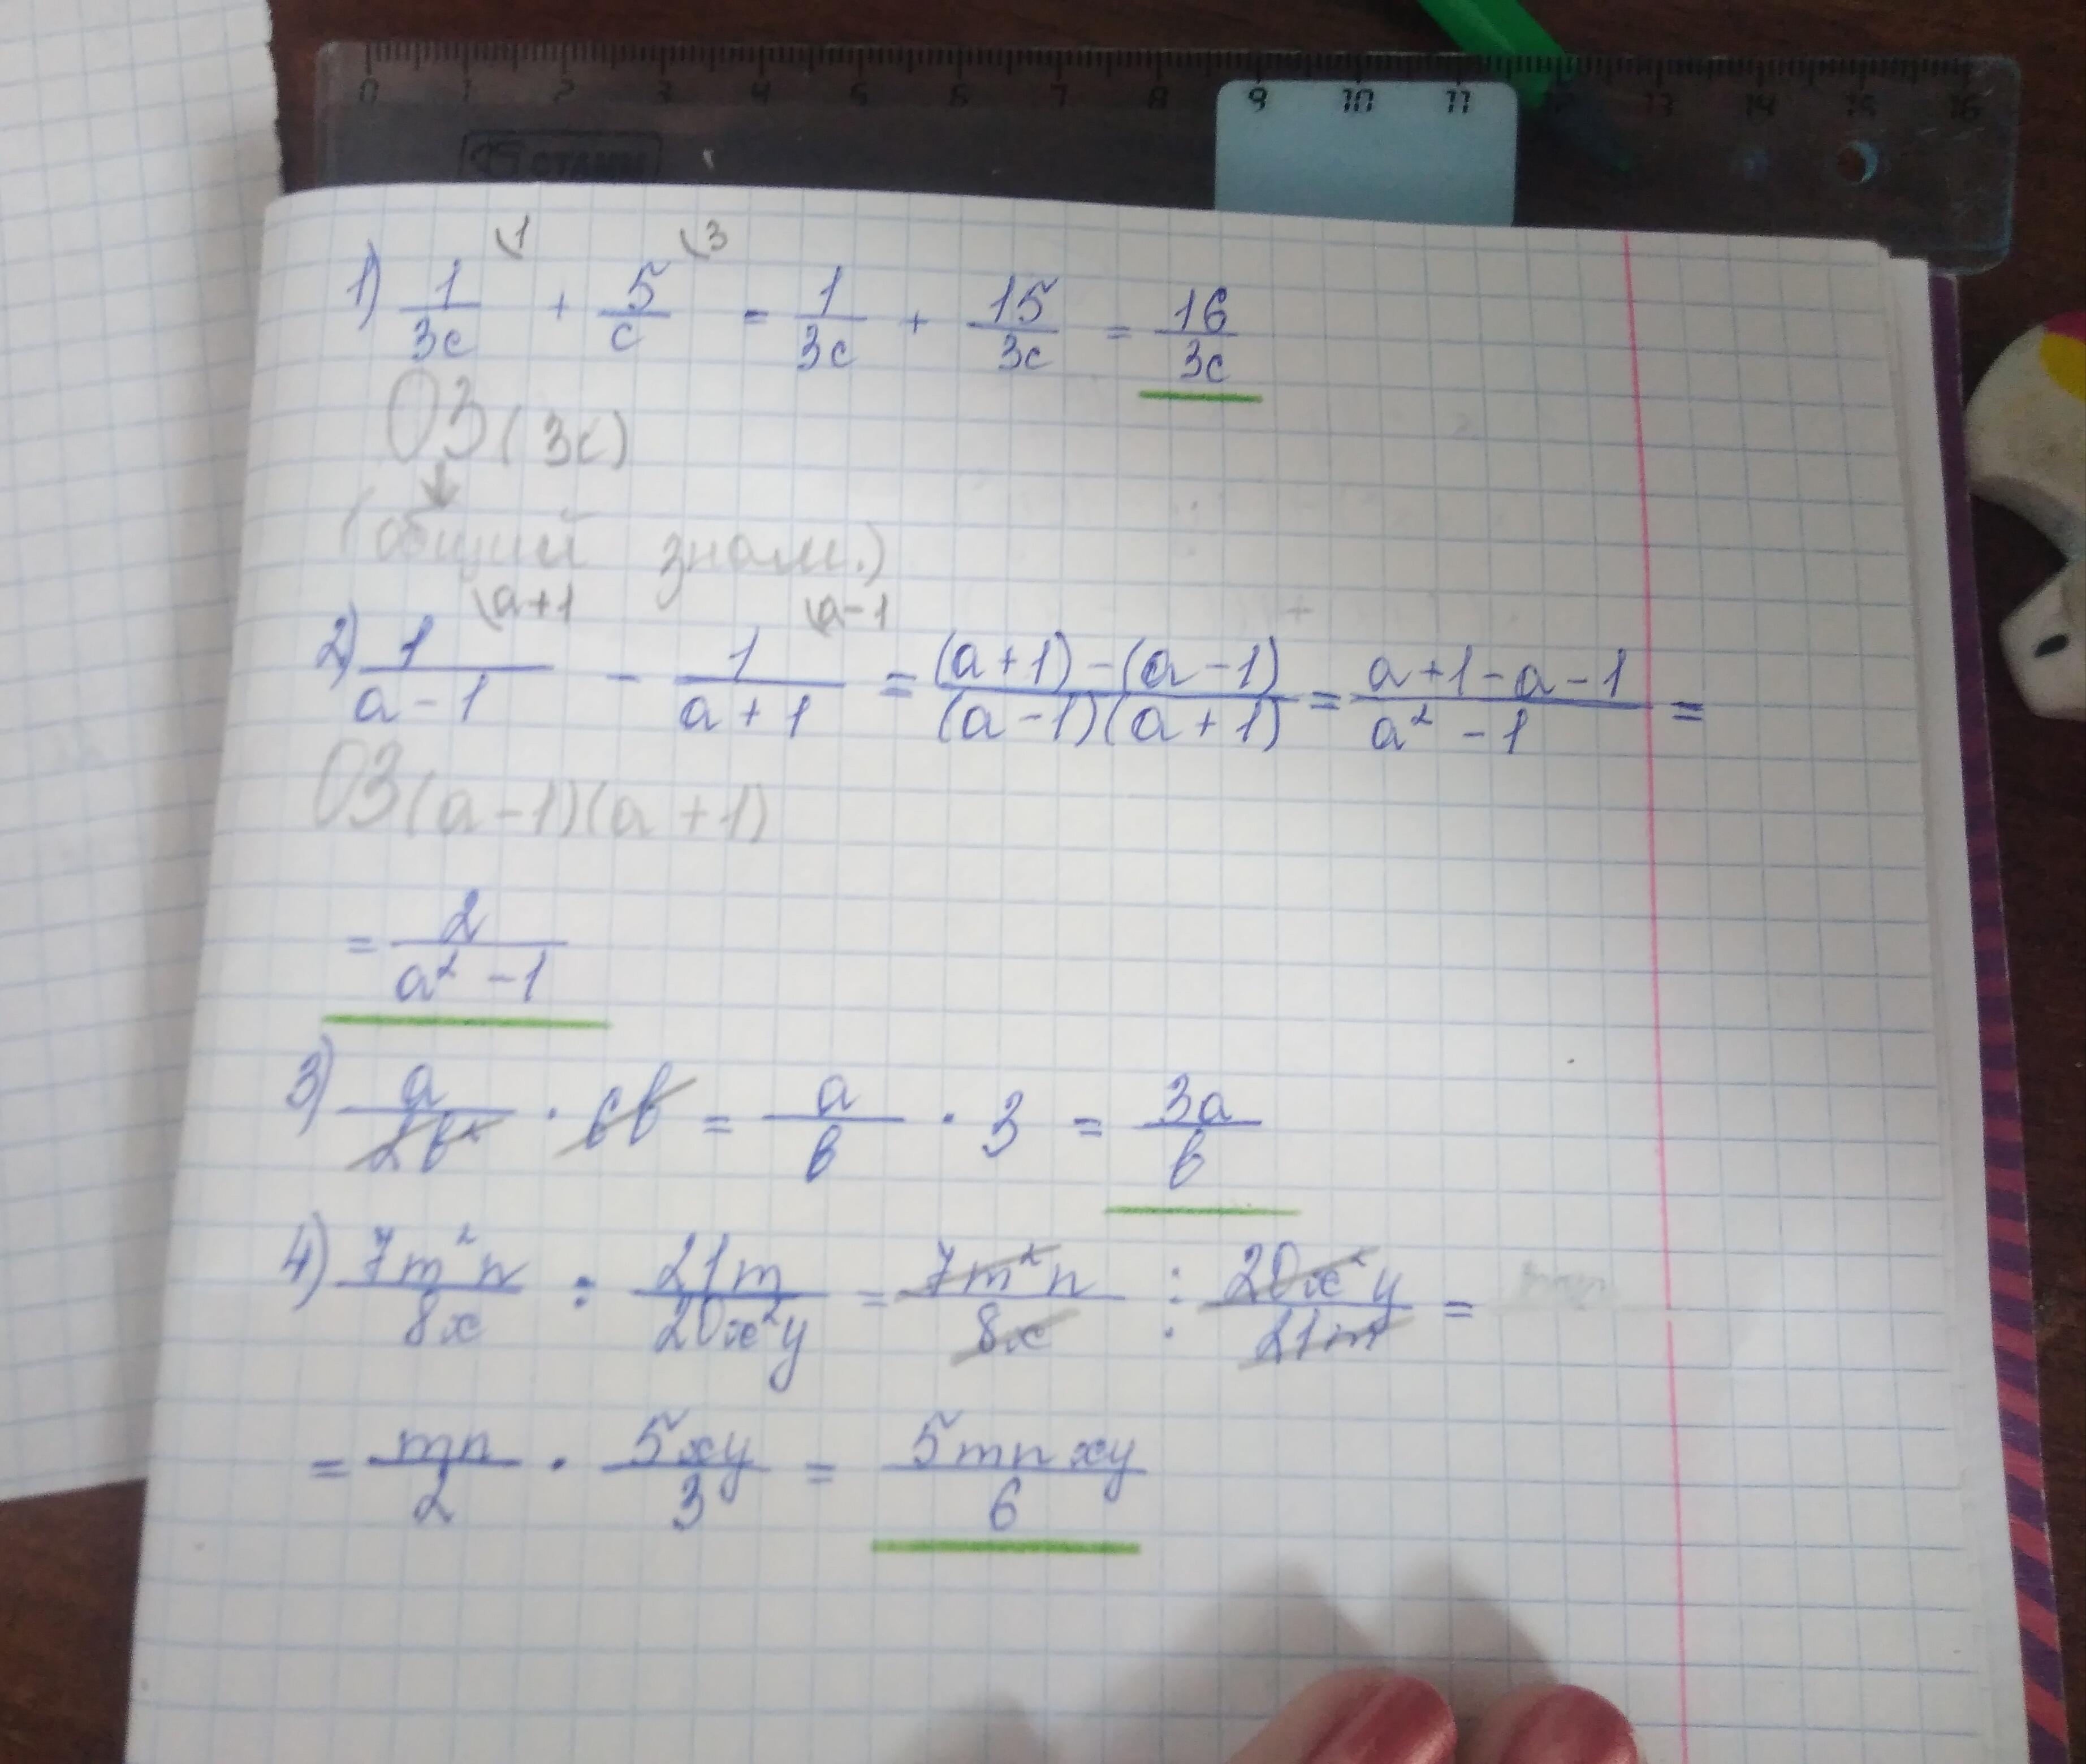 0 1 2 3 4 5 6 7 8 9 10 11 12 13 14 15 16
СТАММ
\1 \3
1) 1/3c + 5/c = 1/3c + 15/3c = 16/3c
ОЗ (3c)
(общий знам.)
\a+1 \a-1
2) 1/(a-1) - 1/(a+1) = ((a+1)-(a-1))/((a-1)(a+1)) = (a+1-a-1)/(a²-1) =
ОЗ(a-1)(a+1)
= 2/(a²-1)
3) a/2b² · 6b = a/b · 3 = 3a/b
4) 7m²n/8x : 21m/20x²y = 7m²n/8x : 20x²y/21m =
= mn/2 · 5xy/3 = 5mnxy/6